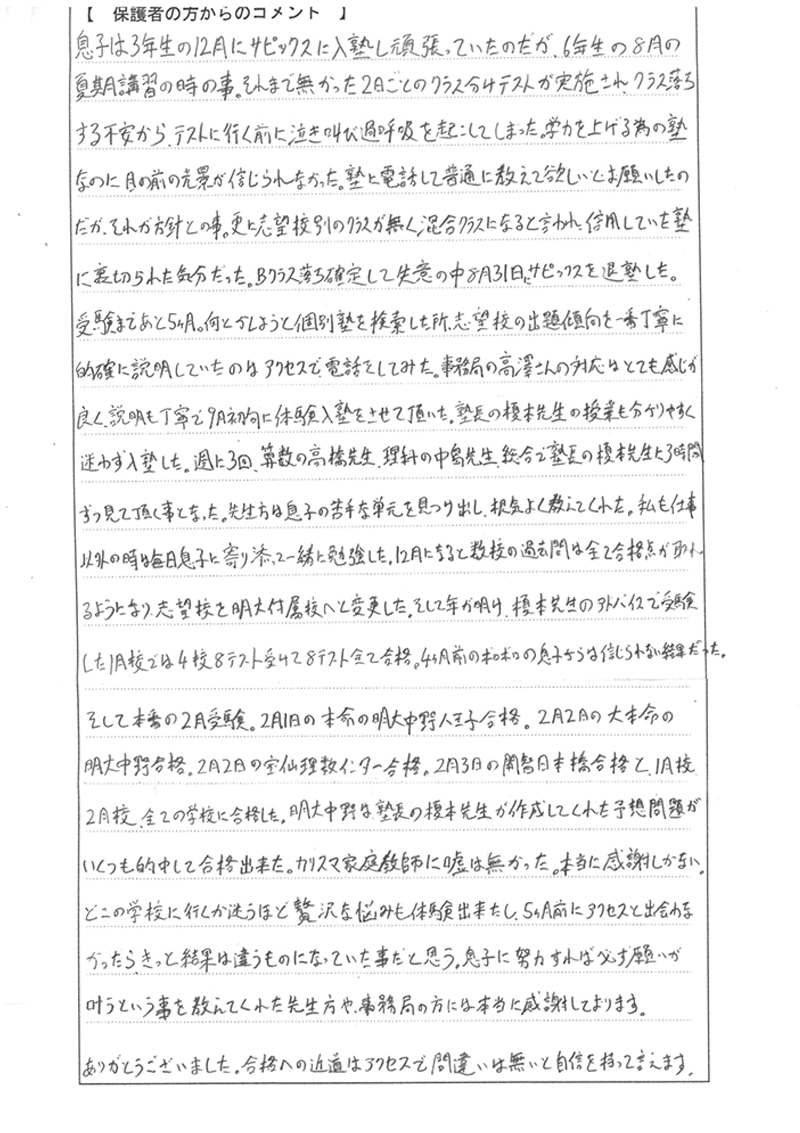 【 保護者の方からのコメント 】
息子は3年生の12月にサピックスに入塾し頑張っていたのだが、6年生の8月の
夏期講習の時の事。それまで無かった2日ごとのクラス分けテストが実施され、クラス落ち
する不安から、テストに行く前に泣き叫び過呼吸を起こしてしまった。学力を上げる為の塾
なのに目の前の光景が信じられなかった。塾に電話して普通に教えて欲しいとお願いしたの
だが、それが方針との事。更に志望校別のクラスが無く、混合クラスになると言われ、信用していた塾
に裏切られた気分だった。Bクラス落ち確定して失意の中8月31日にサピックスを退塾した。
受験まであと5ヶ月。何とかしようと個別塾を検索した所、志望校の出題傾向を一番丁寧に
的確に説明していたのはアクセスで、電話をしてみた。事務局の高澤さんの対応はとても感じが
良く、説明も丁寧で9月初旬に体験入塾をさせて頂いた。塾長の榎本先生の授業も分かりやすく
迷わず入塾した。週に3回、算数の高橋先生、理科の中島先生、総合で塾長の榎本先生に3時間
ずつ見て頂く事となった。先生方は息子の苦手な単元を見つけ出し、根気よく教えてくれた。私も仕事
以外の時は毎日息子に寄り添って一緒に勉強した。12月になると数校の過去問は全て合格点が取れ
るようになり、志望校を明大付属校へと変更した。そして年が明け、榎本先生のアドバイスで受験
した1月校では4校8テスト受けて8テスト全て合格。4ヶ月前のボロボロの息子からは信じられない結果だった。
そして本番の2月受験。2月1日の本命の明大中野八王子合格。2月2日の大本命の
明大中野合格。2月2日の宝仙理数インター合格。2月3日の開智日本橋合格と、1月校、
2月校、全ての学校に合格した。明大中野は、塾長の榎本先生が作成してくれた予想問題が
いくつも的中して合格出来た。カリスマ家庭教師に嘘は無かった。本当に感謝しかない。
どこの学校に行くか迷うほど贅沢な悩みも体験出来たし、5ヶ月前にアクセスと出会わな
かったら、きっと結果は違うものになっていた事だと思う。息子に努力すれば必ず願いが
叶うという事を教えてくれた先生方や、事務局の方には本当に感謝しております。
ありがとうございました。合格への近道はアクセスで間違いは無いと自信を持って言えます。